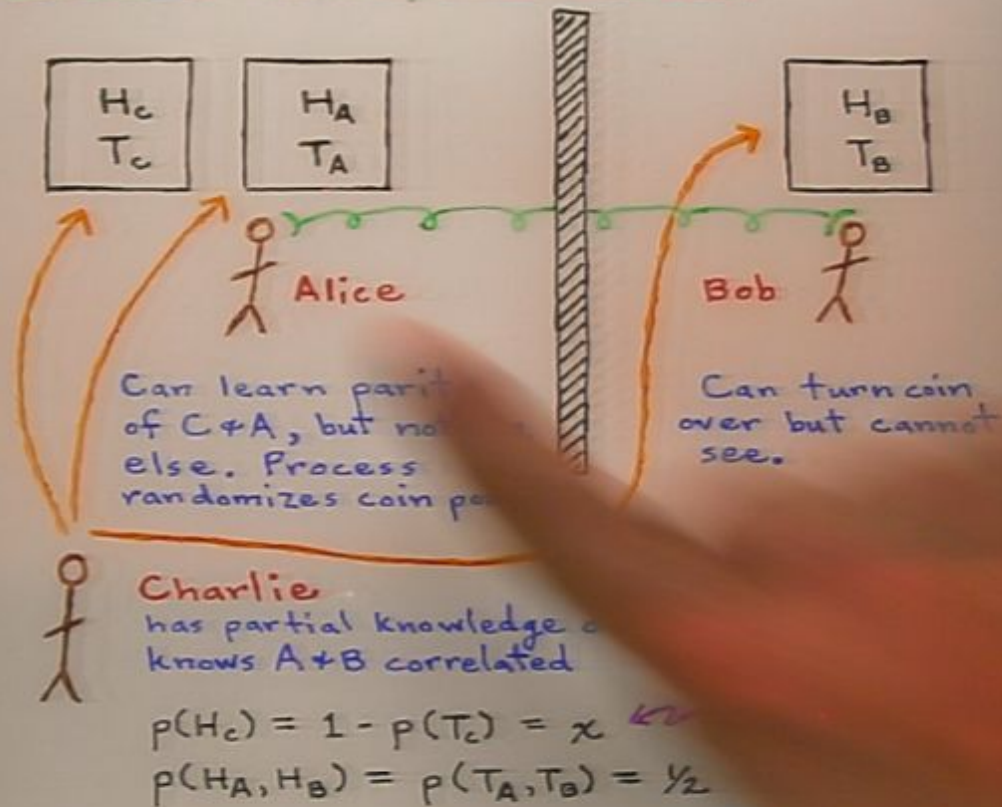 H_C H_A H_B
T_C T_A T_B
Alice Bob
Can learn
of C & A, but
else. Process
randomizes coin
Can turn coin
over but cannot
see.
Charlie
has partial knowledge
knows A & B correlated
p(H_C) = 1 - p(T_C) = x
p(H_A, H_B) = p(T_A, T_B) = 1/2